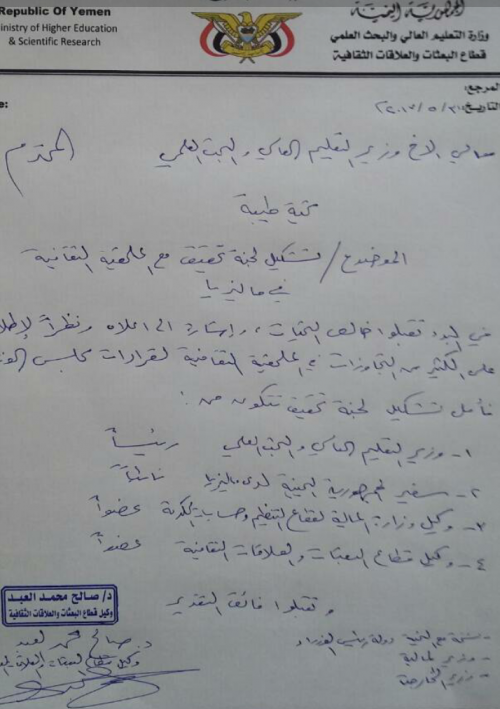 Republic Of Yemen
inistry of Higher Education
& Scientific Research
الجمهورية اليمنية
وزارة التعليم العالي والبحث العلمي
قطاع البعثات والعلاقات الثقافية
المرجع:
التاريخ: ٢٠١٣/٥/٣١
e:
معالي الاخ وزير التعليم العالي والبحث العلمي المحترم
تحية طيبة
الموضوع / تشكيل لجنة تحقيق مع الملحقية الثقافية
في ماليزيا
في البدء تقبلوا خالص التحيات، وإشارة الى اعلاه ونظراً لإطلا
على الكثير من التجاوزات في الملحقية الثقافية لقرارات مجلس الوز
نأمل تشكيل لجنة تحقيق تتكون من :
١- وزير التعليم العالي والبحث العلمي رئيساً
٢- سفير الجمهورية اليمنية لدى ماليزيا نائباً
٣- وكيل وزارة المالية لقطاع التنظيم وحسابات الحكومة عضواً
٤- وكيل قطاع البعثات والعلاقات الثقافية عضواً
وتقبلوا فائق التقدير
د/ صالح محمد العبد
وكيل قطاع البعثات والعلاقات الثقافية
د. صالح محمد لعبد
وكيل قطاع البعثات
- نسخة مع التحية دولة رئيس الوزراء
- وزير المالية
- وزير الخارجية